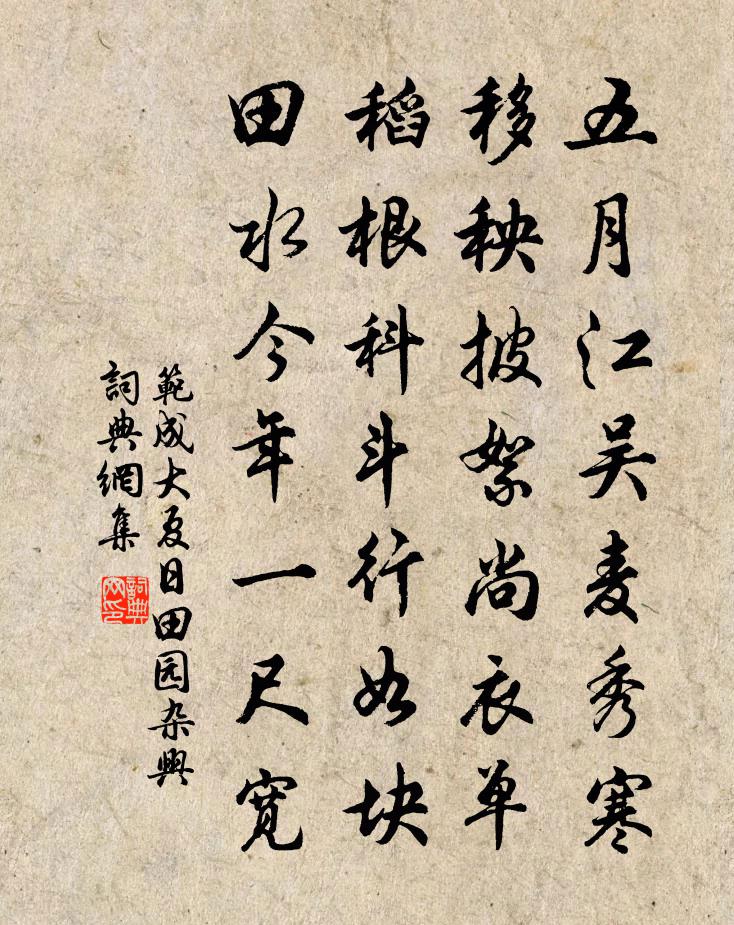 五月江吴麦秀寒
移秧披絮尚衣单
稻根科斗行如块
田水今年一尺宽
範成大夏日田园杂興
詞典網集
詞典網印